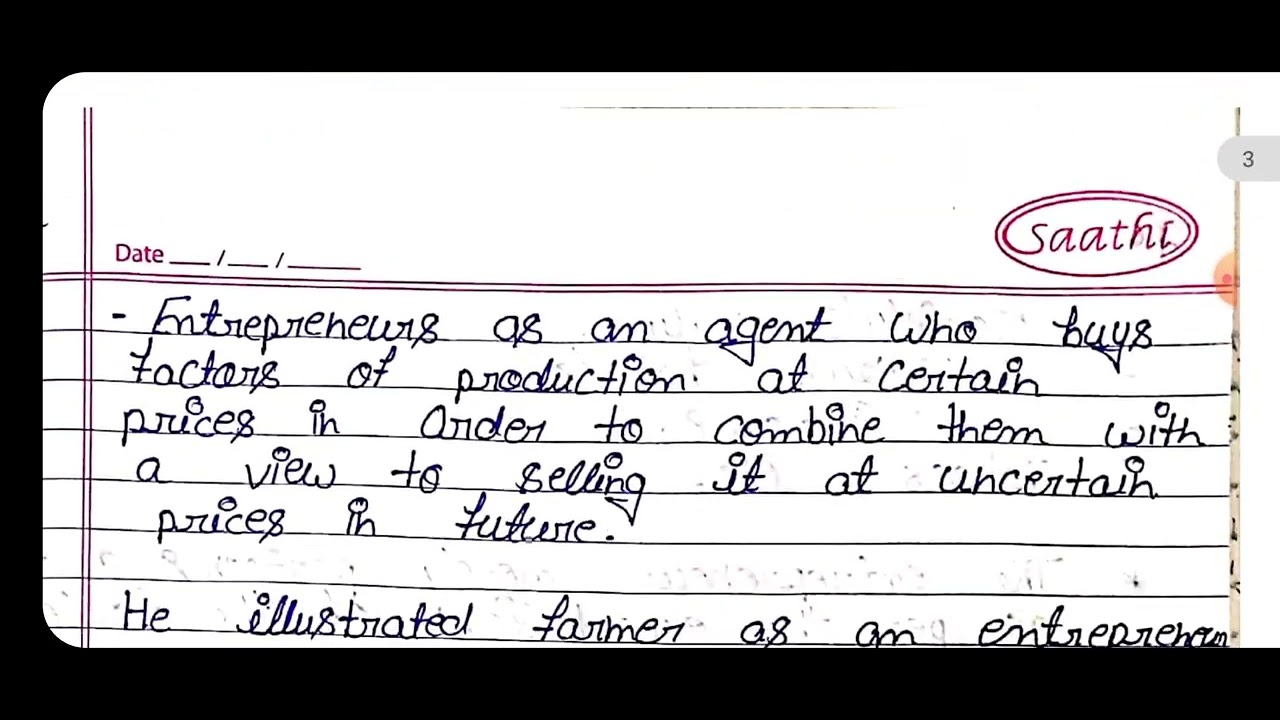 3
Saathi
Date ___ /___ /_____
- Entrepreneurs as an agent who buys
factors of production at certain
prices in order to combine them with
a view to selling it at uncertain
prices in future.
He illustrated farmer as an entrepreneur